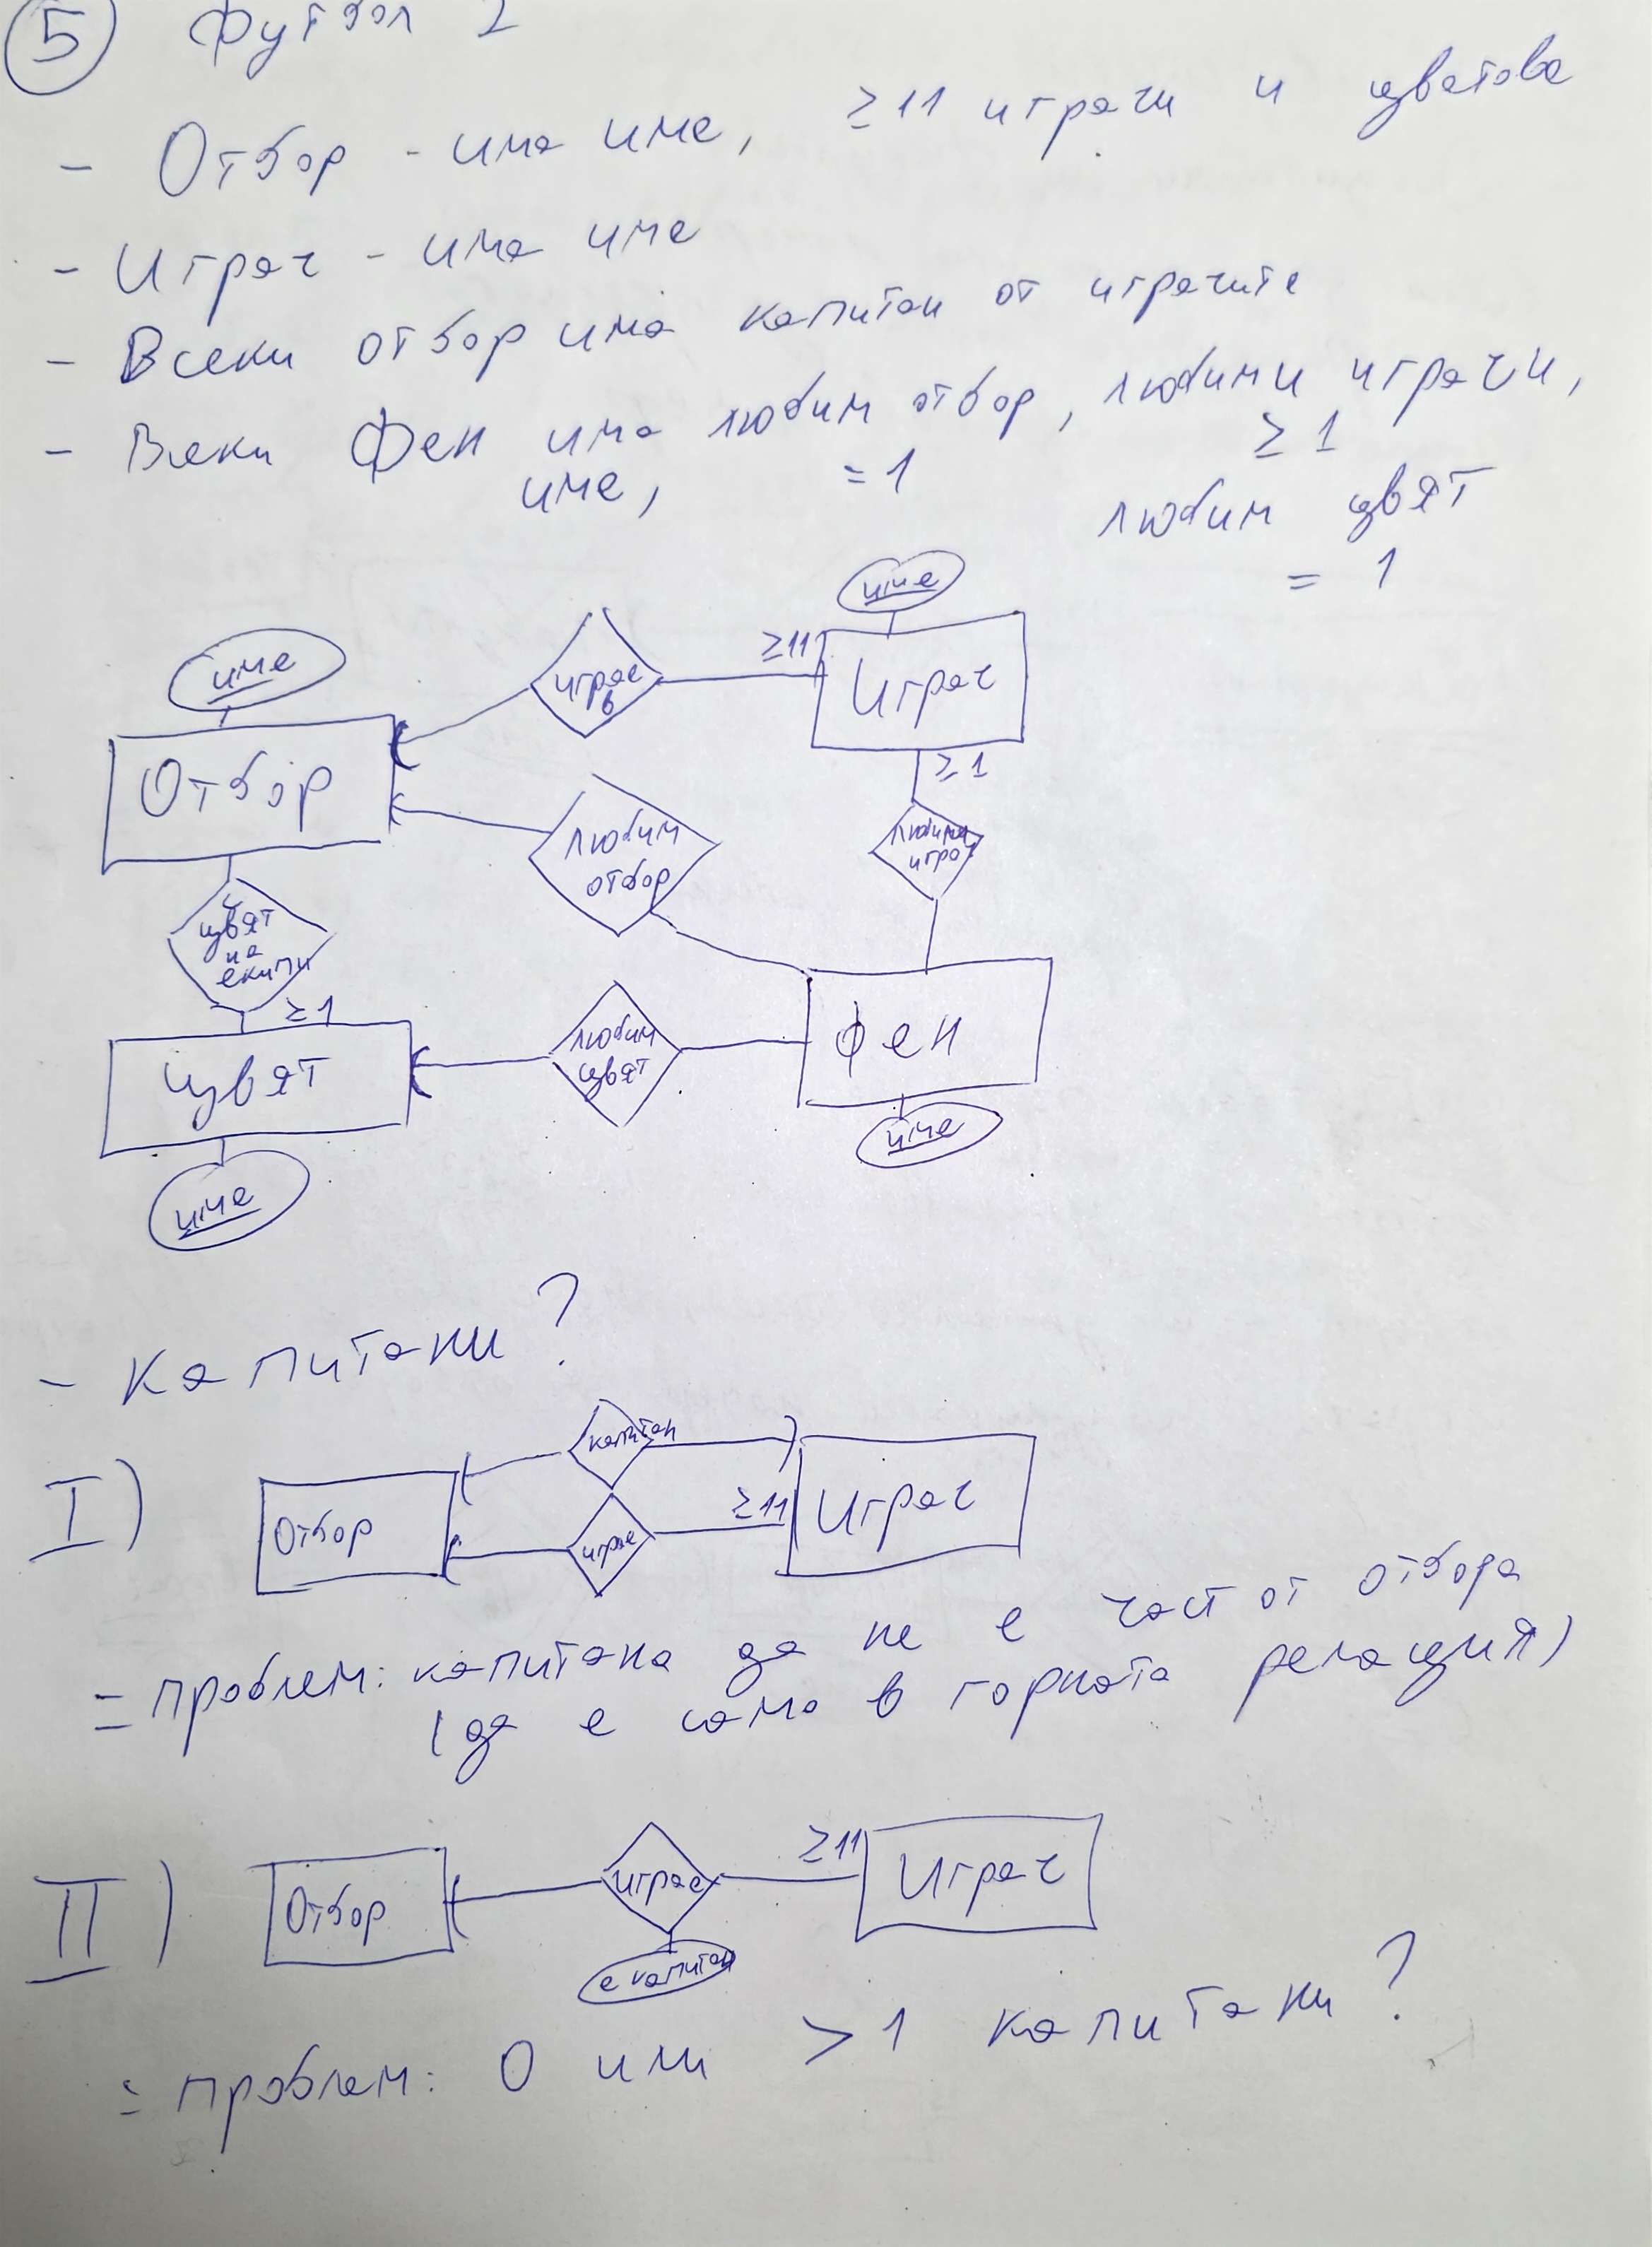 5 Футбол 2
- Отбор - има име, ≥11 играчи и цветове
- Играч - има име
- Всеки отбор има капитан от играчите
- Всеки фен има любим отбор, любими играчи,
име, =1 ≥1
любим цвят
= 1
име
име
играе в
≥11
Играч
Отбор
≥1
любим отбор
цвят на екипи
≥1
любим цвят
Фен
Цвят
име
име
- Капитани?
I)
капитан
Отбор
играе
≥11
Играч
= проблем: капитана да не е част от отбора
(да е само в горната релация)
II)
Отбор
играе
≥11
Играч
е капитан
= проблем: 0 или >1 капитани?